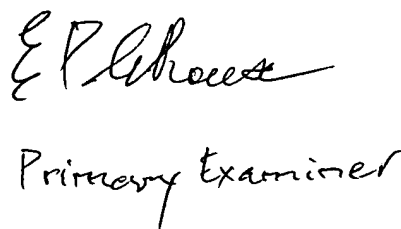 E P LeRoux
Primary Examiner